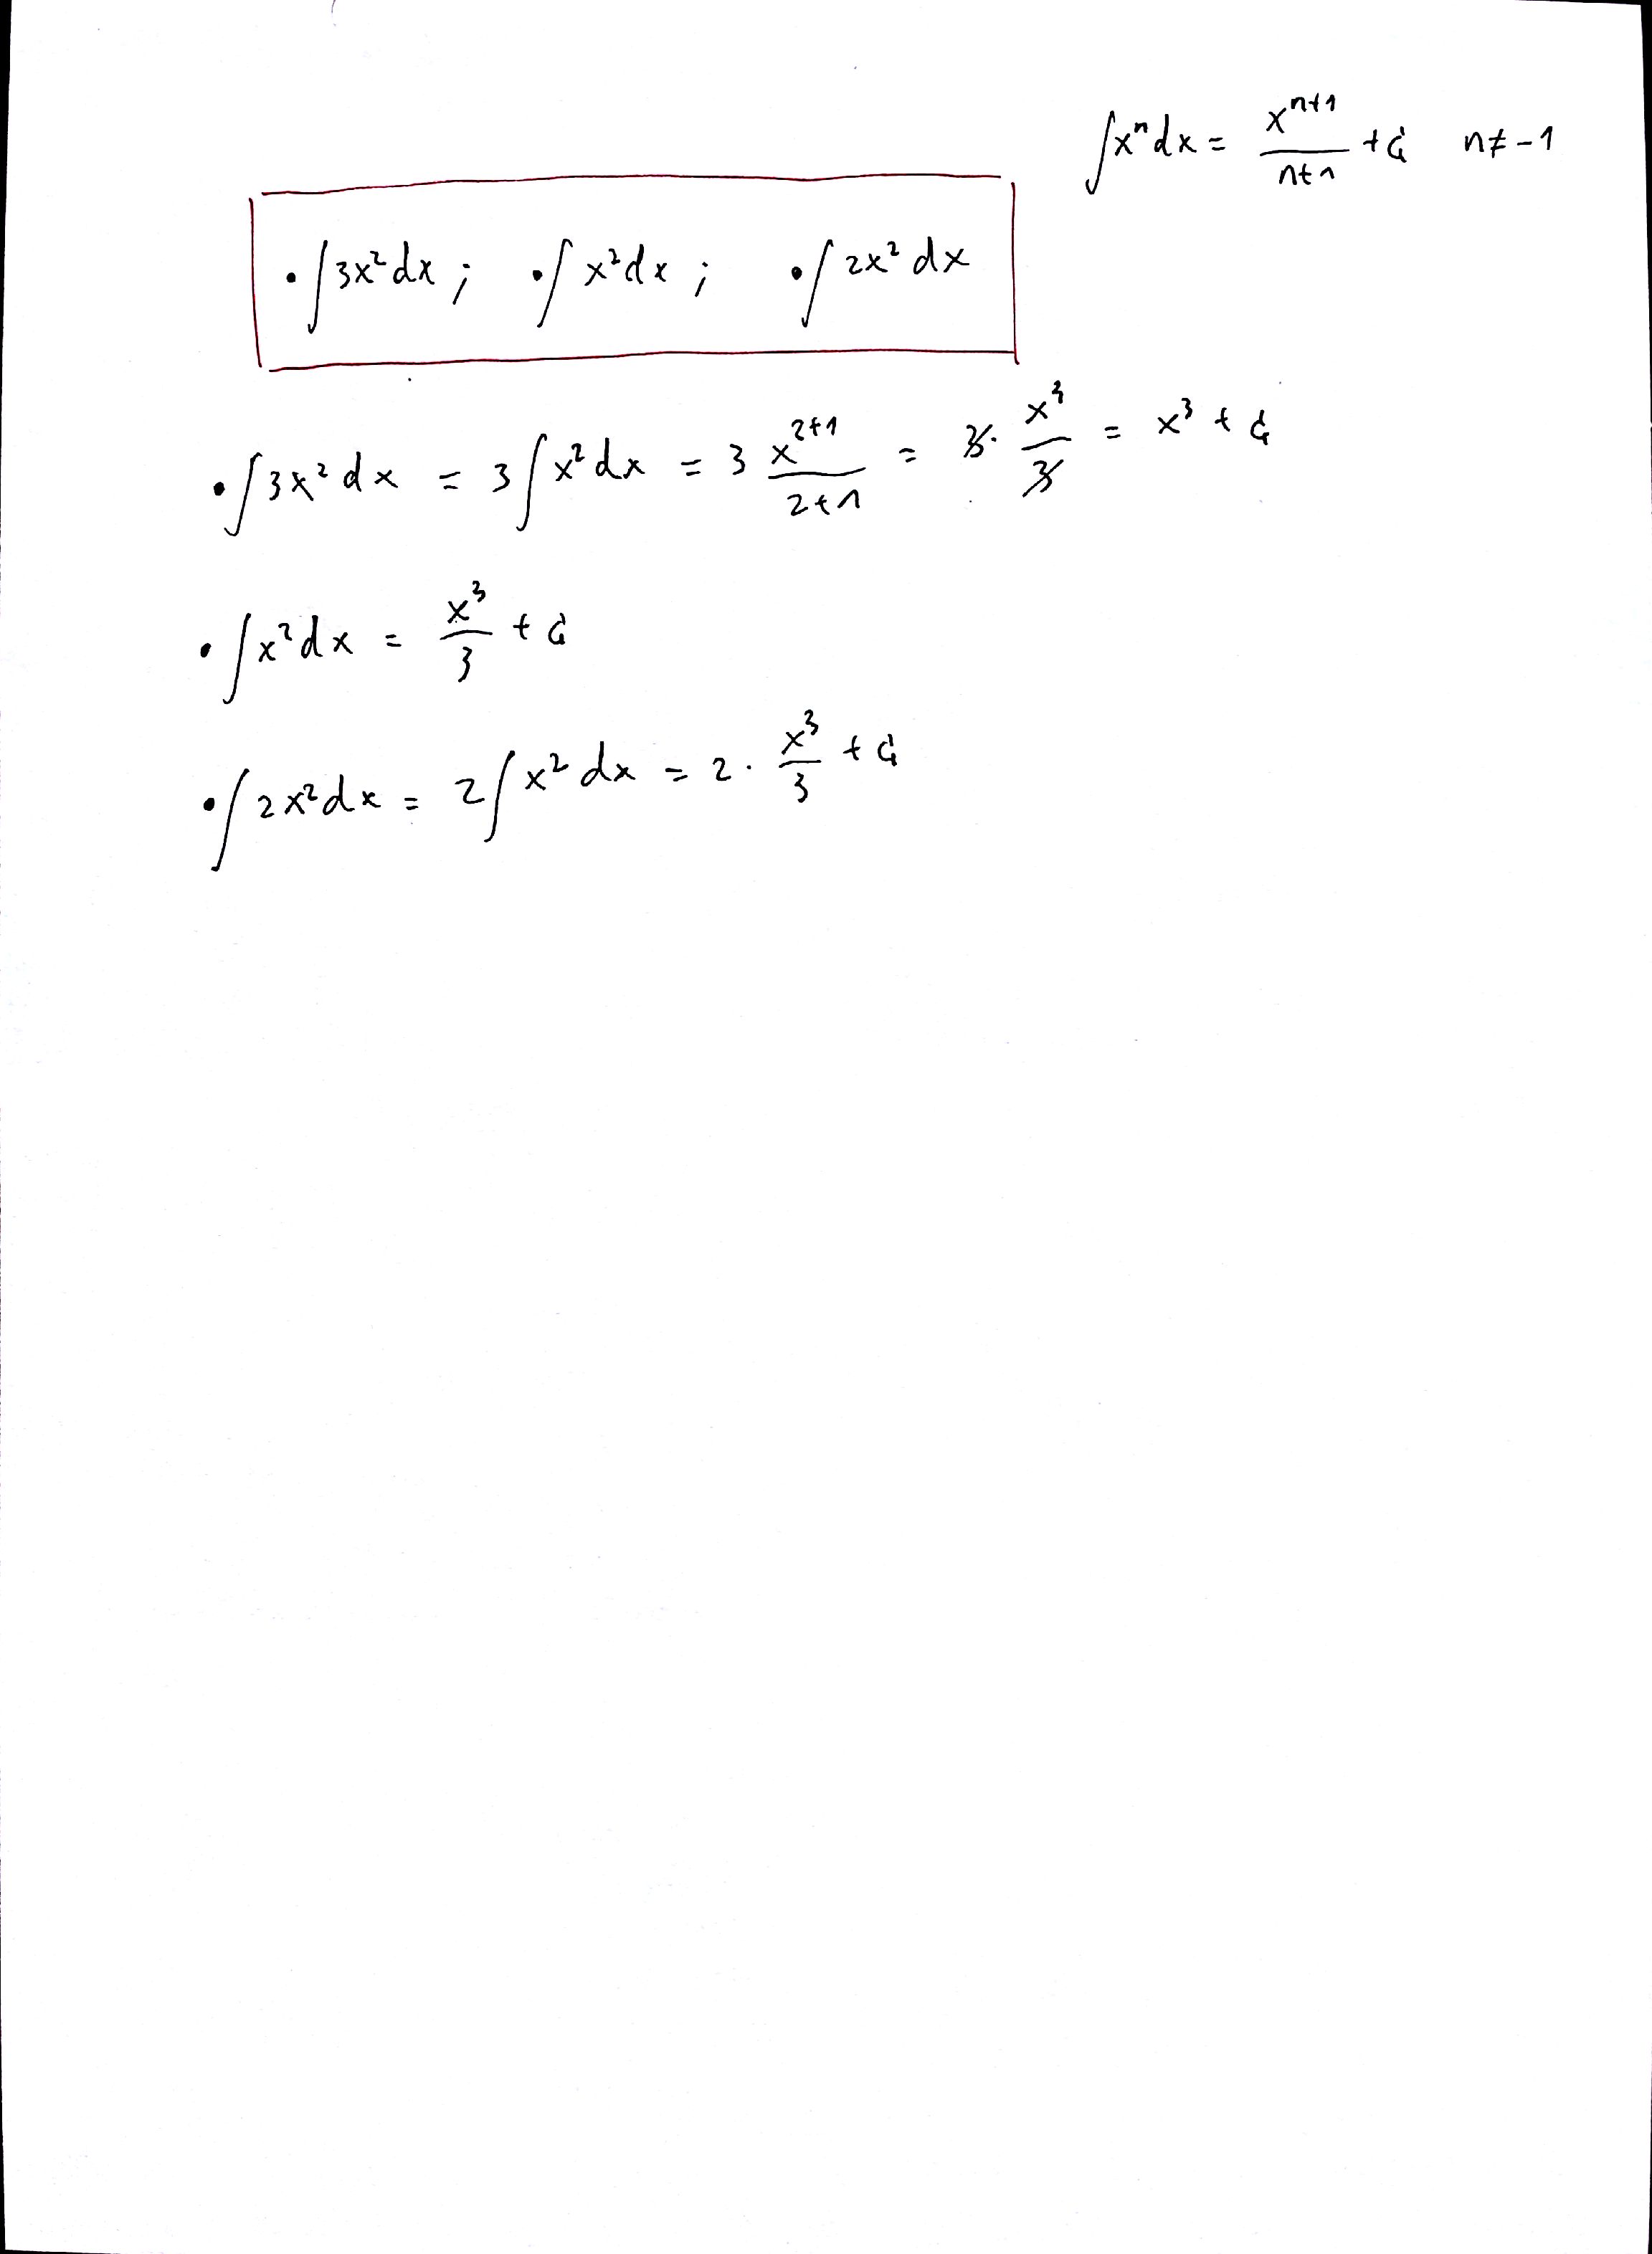 ∫xⁿdx = xⁿ⁺¹/(n+1) + C n ≠ -1
• ∫3x²dx ; • ∫x²dx ; • ∫2x² dx
• ∫3x² dx = 3∫x²dx = 3 x²⁺¹/(2+1) = 3 · x³/3 = x³ + C
• ∫x²dx = x³/3 + C
• ∫2x²dx = 2∫x² dx = 2 · x³/3 + C